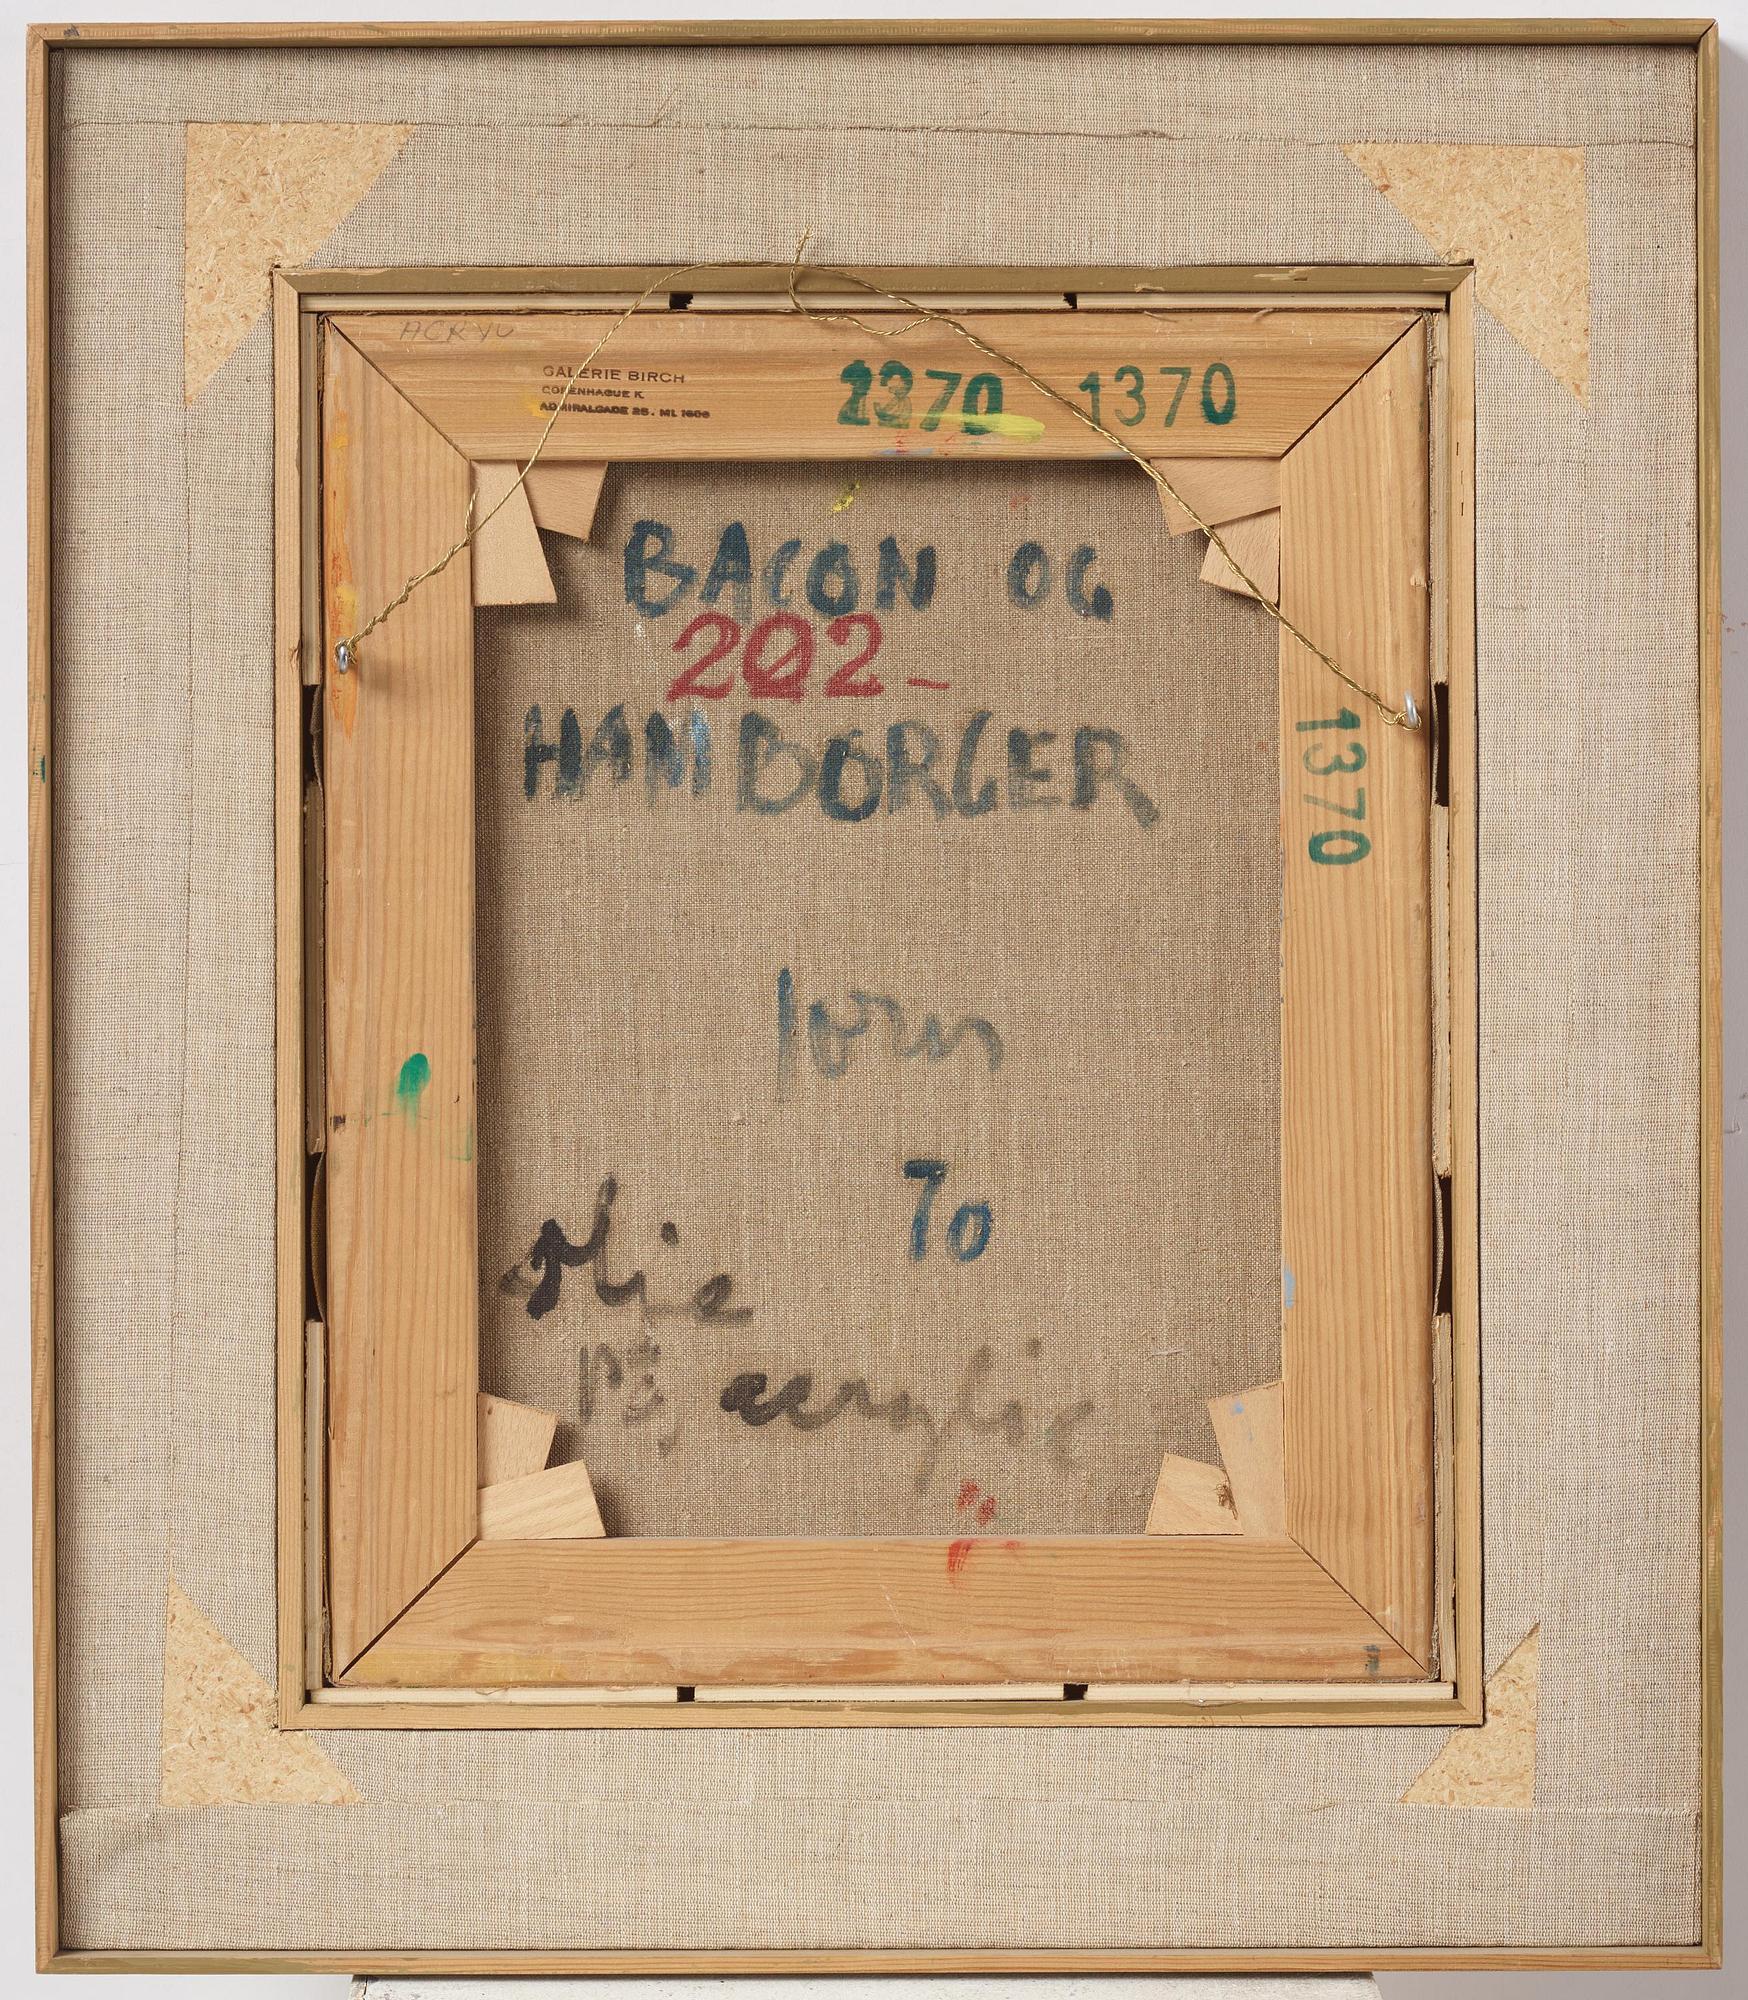 ACRYL
GALERIE BIRCH
COPENHAGUE K
ADMIRALGADE 25. MI. 1606
1370 1370
BACON OG
202-
HAMBORGER
1370
Jorn
70
olie
på acrylic